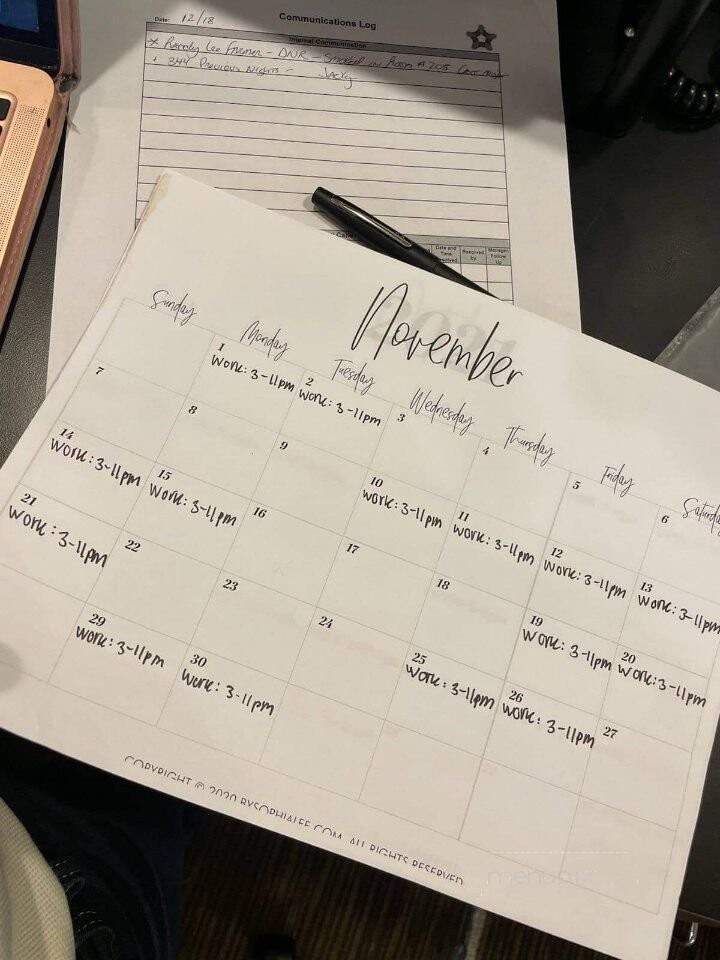 Date: 12/18
Communications Log
Internal Communication
* Randy Lee - DNR - Smoked in Room # 205
* 344 Precious Nights - Jacky
Date and Time Received
Received by
Manager Follow Up
November
2021
Sunday Monday Tuesday Wednesday Thursday Friday Saturday
1 Work: 3-11pm
2 Work: 3-11pm
3
4
5
6
7
8
9
10 Work: 3-11pm
11 Work: 3-11pm
12 Work: 3-11pm
13 Work: 3-11pm
14 Work: 3-11pm
15 Work: 3-11pm
16
17
18
19 Work: 3-11pm
20 Work: 3-11pm
21 Work: 3-11pm
22
23
24
25 Work: 3-11pm
26 Work: 3-11pm
27
29 Work: 3-11pm
30 Work: 3-11pm
COPYRIGHT © 2020 BYSOPHIALEE.COM. ALL RIGHTS RESERVED